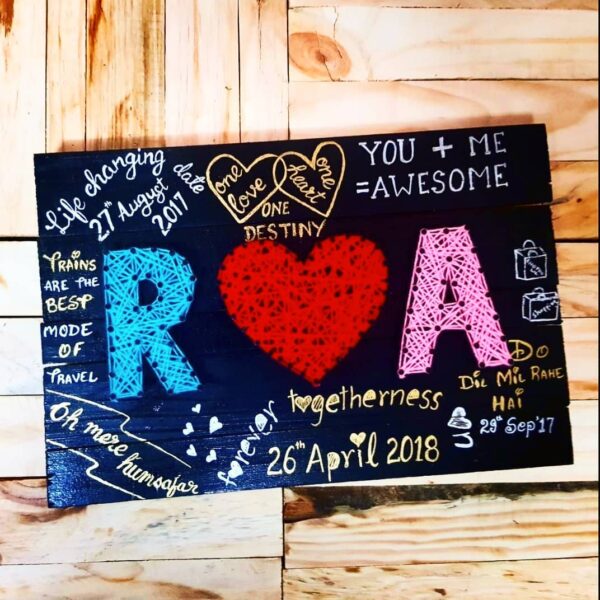 Life changing date
27th August
2017
one love
one heart
ONE
DESTINY
YOU + ME
=AWESOME
TRAINS
ARE THE
BEST
MODE
OF
TRAVEL
R
A
DO
DIL MIL RAHE
HAI
29th Sep'17
togetherness
forever
26th April 2018
Oh mere humsafar